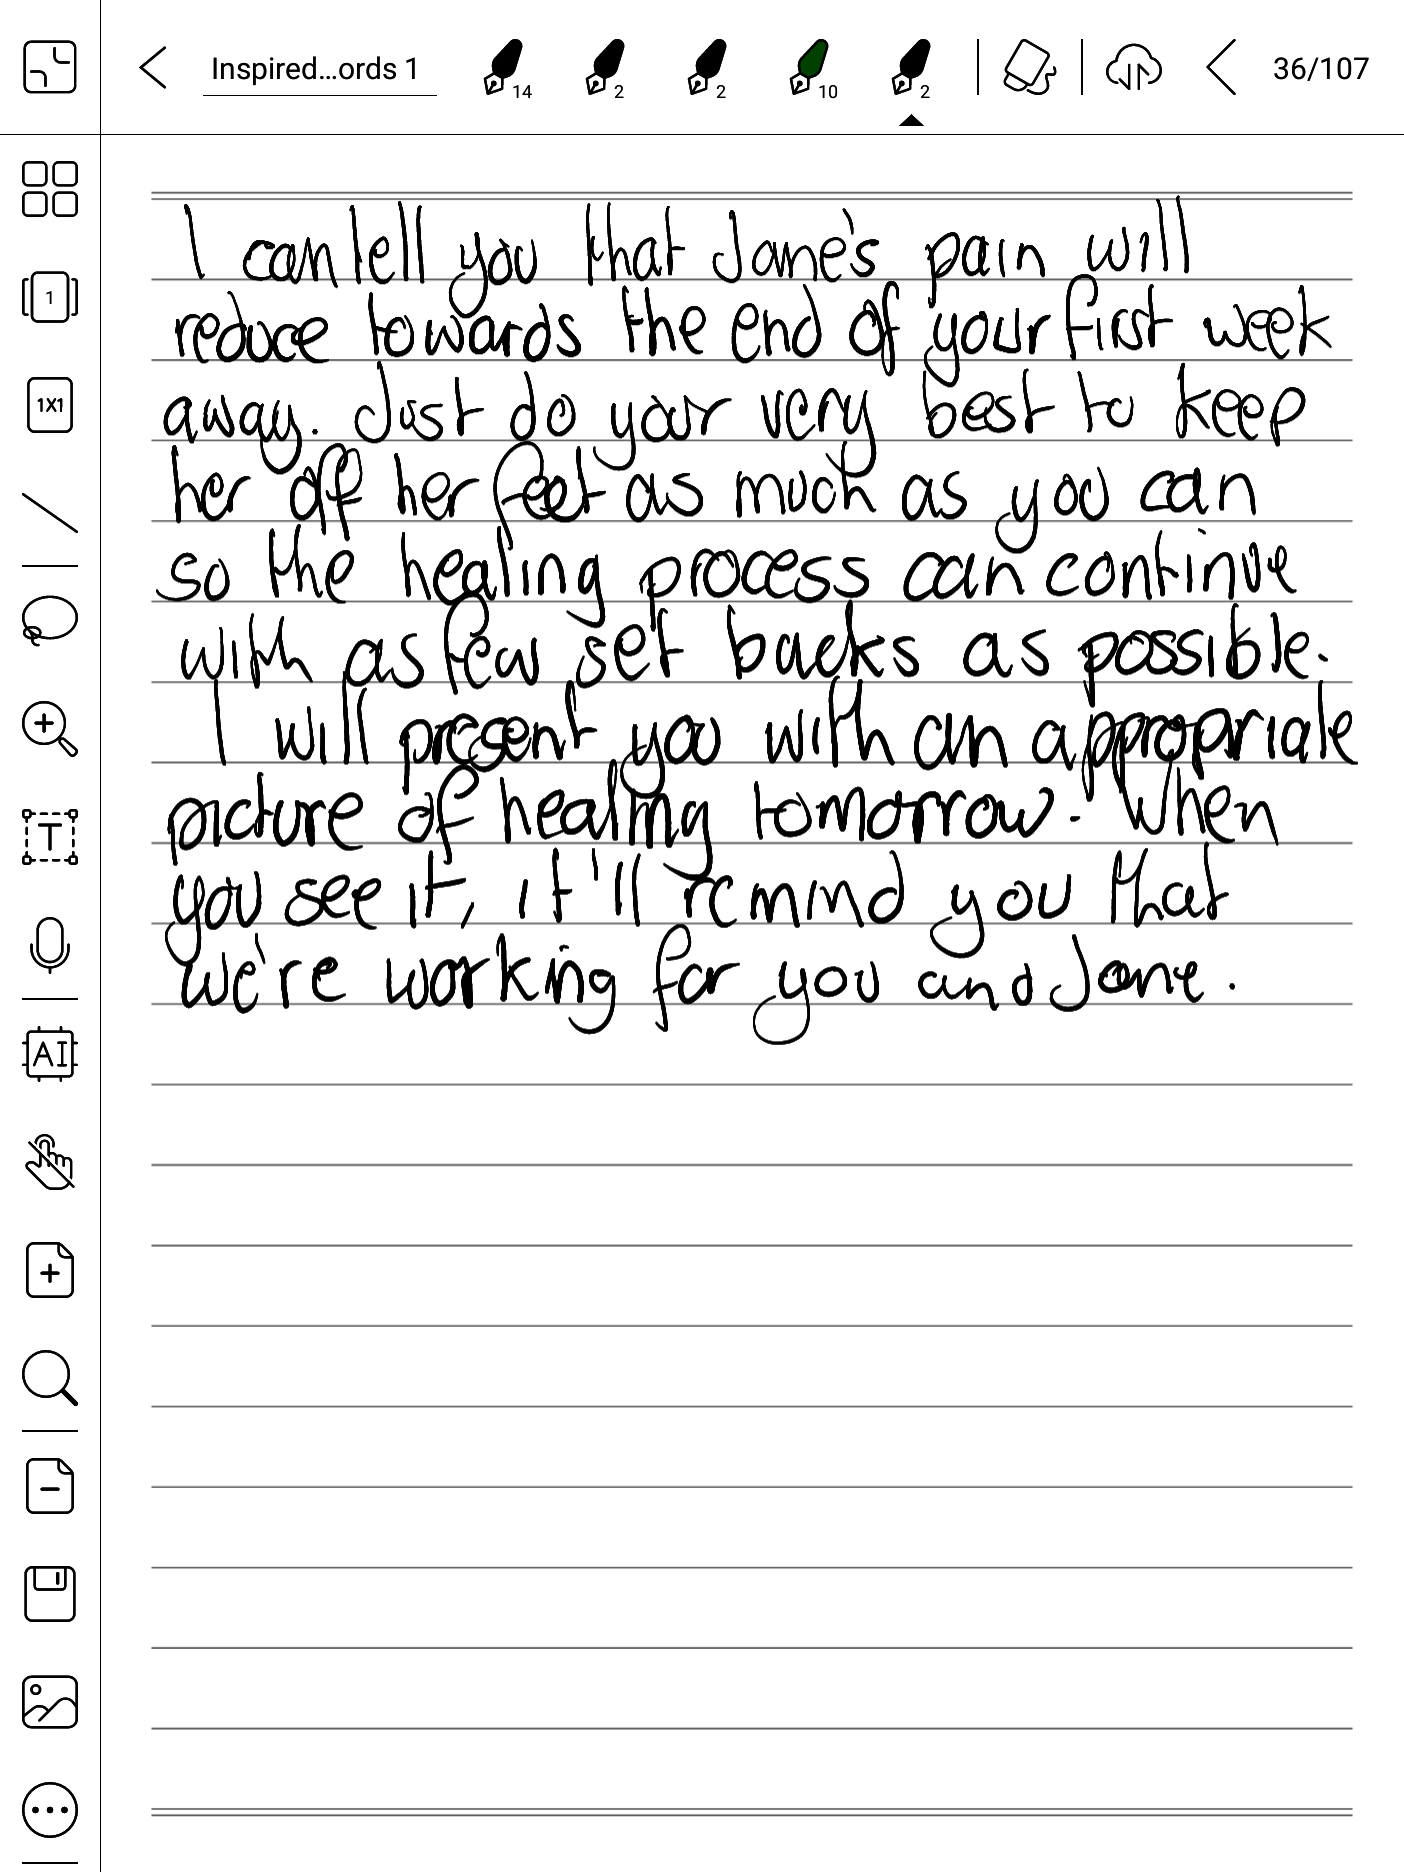 Inspired...ords 1
14
2
2
10
2
36/107
1
1X1
T
AI
I can tell you that Jane's pain will
reduce towards the end of your first week
away. Just do your very best to keep
her off her feet as much as you can
so the healing process can continue
with as few set backs as possible.
I will present you with an appropriate
picture of healing tomorrow. When
you see it, it'll remind you that
we're working for you and Jane.